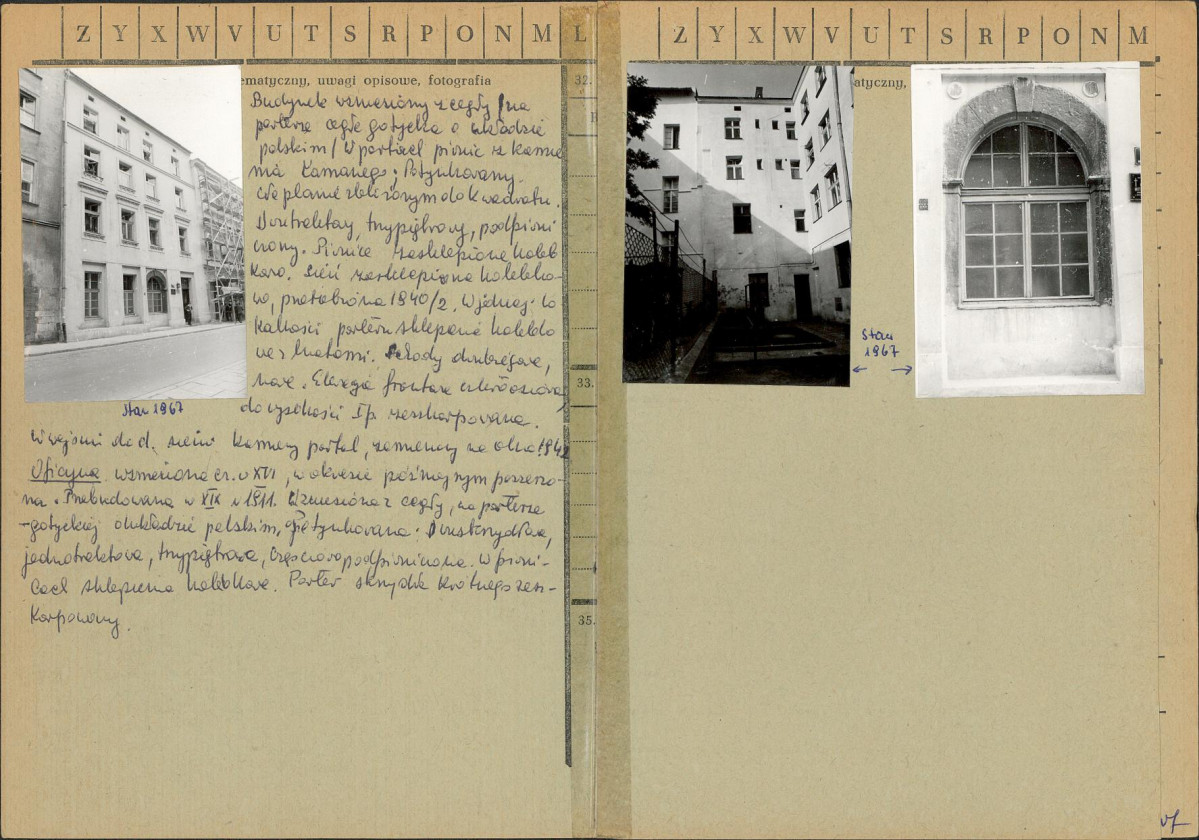 Z Y X W V U T S R P O N M L
ematyczny, uwagi opisowe, fotografia
32.
Budynek wzniesiony z cegły /na
parterze cegła gotycka o układzie
polskim/ W partiach piwnic z kamie
nia łamanego; Potynkowany.
na planie zbliżonym do kwadratu.
Dwutraktowy, trzypiętrowy, podpiwni
czony. Piwnice zasklepione koleb
kowo. Sień zasklepiona kolebko-
wo, przerobiona 1840/2. W jednej lo
kalności parteru sklepienie kolebko
we z lunetami. Schody dwubiegowe,
nowe. Elewacja frontowa
33.
do wysokości I p. zeszkarpowana.
stan 1967
W wejściu do d. sieni kamienny portal, zamieniony na okno 1842
Oficyna wzniesiona w XVI, w okresie późniejszym poszerzo-
na. Przebudowana w XIX i 1911. Wzniesiona z cegły, na parterze
-gotyckiej o układzie polskim, potynkowana. Dwuskrzydłowa,
jednotraktowa, trzypiętrowa, częściowo podpiwniczona. W piwni-
cach sklepienia kolebkowe. Parter skrzydła krótkiego zesz-
karpowany.
35.
Z Y X W V U T S R P O N M
atyczny,
Stan
1967